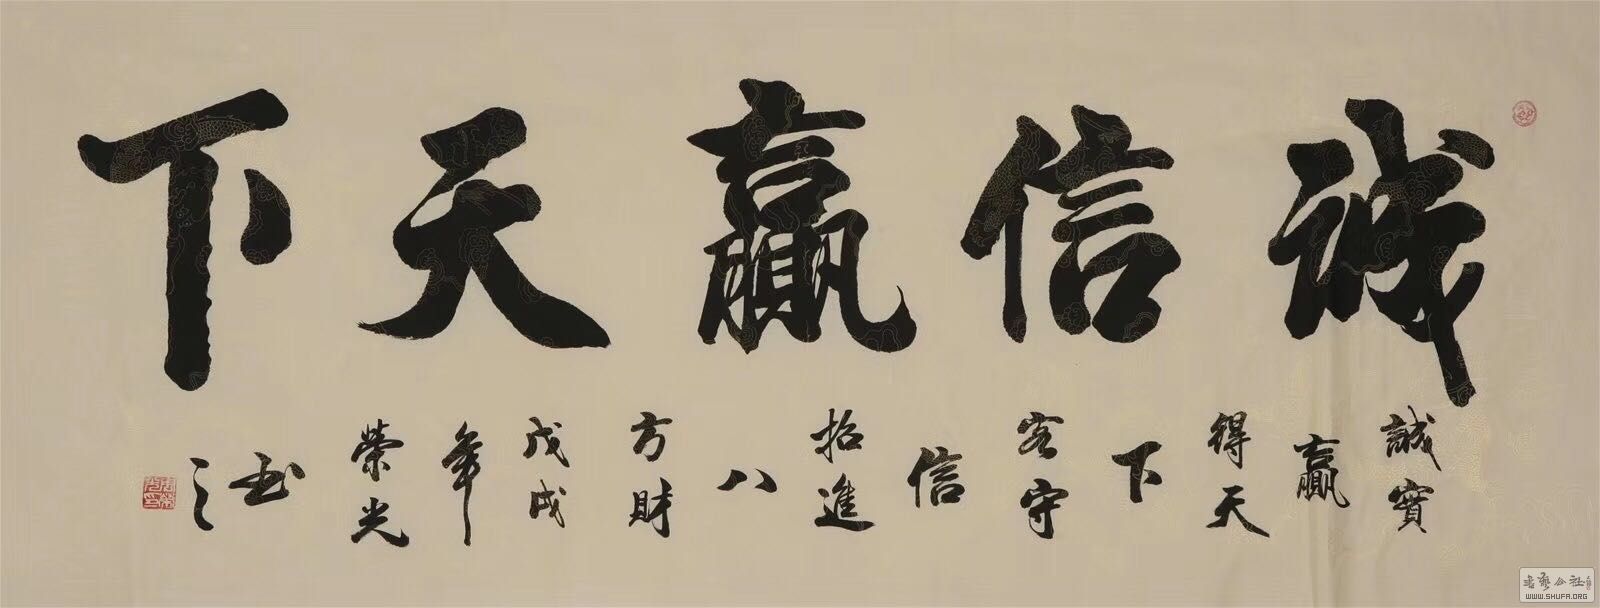 誠信贏天下
誠實
贏
得天
下
客守
信
招進
八
方財
戊戌
年
榮光
书之
書藝公社
WWW.SHUFA.ORG